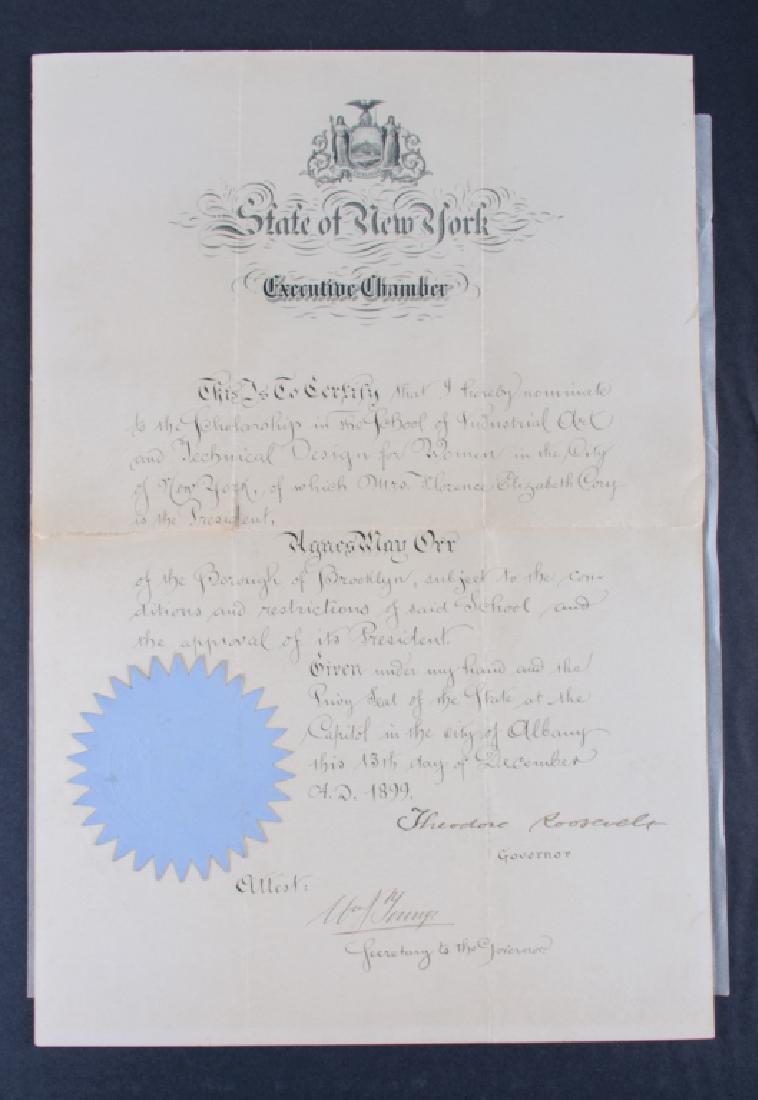 State of New York
Executive Chamber
This Is To Certify that I hereby nominate
to the Scholarship in the School of Industrial Art
and Technical Design for Women in the City
of New York, of which Mrs. Florence Elizabeth Cory
is the President,
Agnes May Orr
of the Borough of Brooklyn, subject to the con-
ditions and restrictions of said School and
the approval of its President.
Given under my hand and the
Privy Seal of the State at the
Capitol in the city of Albany
this 13th day of December
A.D. 1899.
Theodore Roosevelt
Governor
Attest:
Wm J Youngs
Secretary to the Governor